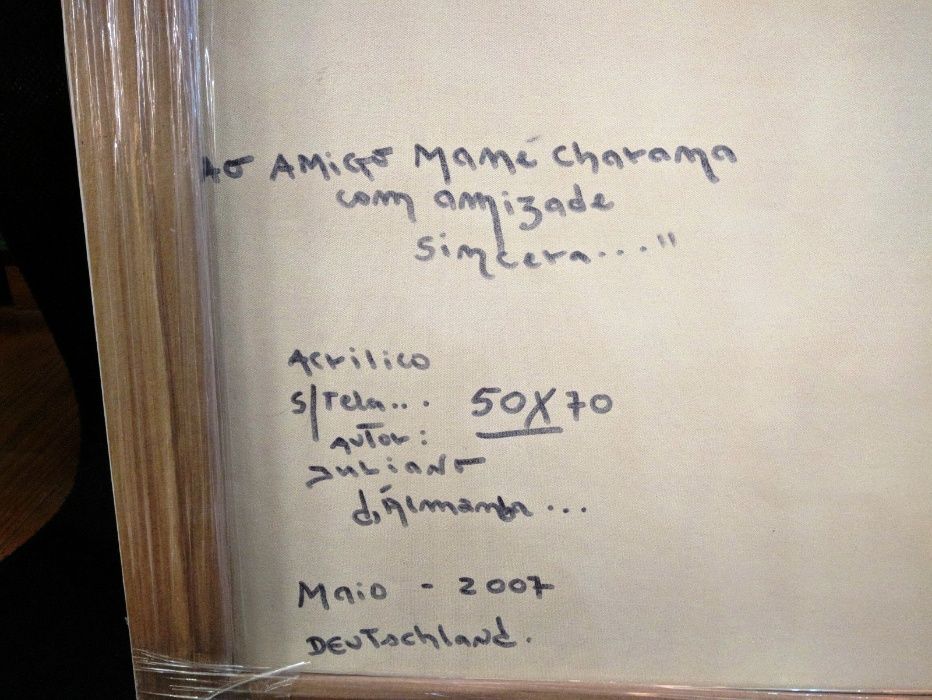 Ao AMiGo Mané Charama
com amizade
Simcera..."
Acrilico
S/Tela... 50X70
Autor:
Juliano
Maio - 2007
DEUTschland.